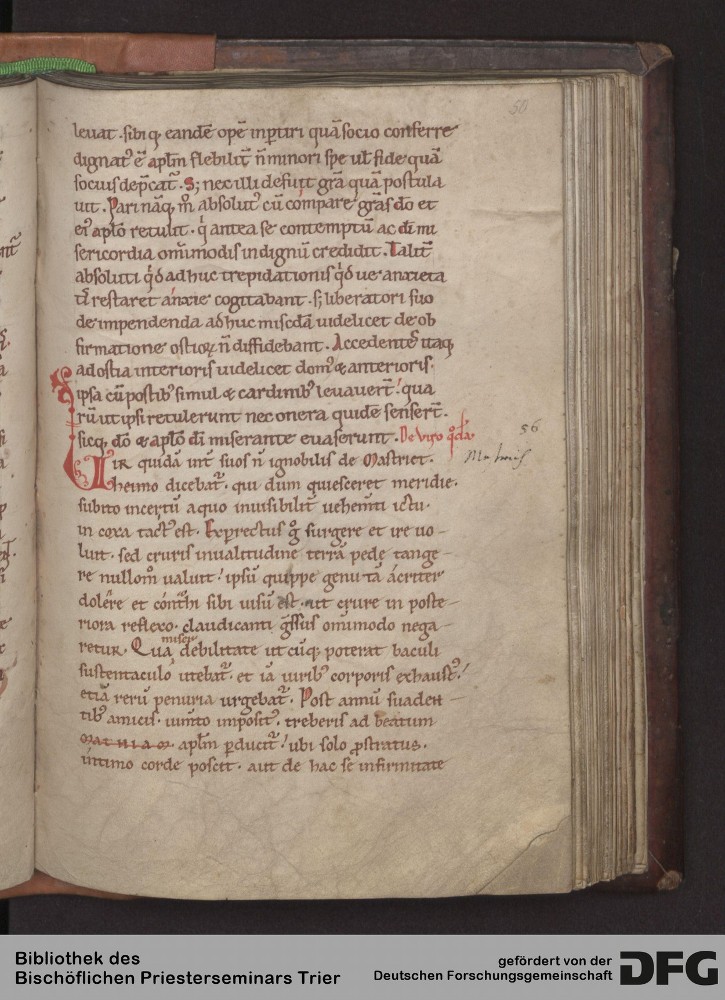 50
leuat. sibi q; eandē opē inpꝑtiri quā socio conferre
dignatꝰ ē aplm̄ flebilit̄ n̄ minori spe ul̄ fide quā
socius dep̄cat᷑. S; nec illi defuit gr̄a quā postula
uit. Pari nāq; m̊ absolutꝰ cū compare gr̄as dō et
eiꝰ aplō retulit. q̇ antea se contemptū ac dī mi
sericordia om̄imodis indignū credidit. Talit̄
absoluti q̇d adhuc trepidationis q̇d ue anxieta
tis restaret anxie cogitabant. s; liberatori suo
de impendenda adhuc mis̄cdā uidelicet de ob
firmatione ostioꝝ n̄ diffidebant. Accedentes itaq;
ad ostia interioris uidelicet domꝰ & anterioris.
ipsa cū postibꝰ simul & cardinibꝰ leuauer̄t! qua
rū ut ipsi retulerunt nec onera quidē senser̄t.
sicq; dō & aplō dī miserante euaserunt. De viro q̊dā.
56
VIR quidā int̄ suos n̄ ignobilis de Mastriet.
Theimo dicebat᷑. qui dum quiesceret meridie.
subito incertū a quo inuisibilit̄ uehem̄ti ictu.
in coxa tactꝰ est. Exp̄rectus g̊ surgere et ire uo-
luit. sed cruris inualitudine terrā pede tange-
re nullom̊ ualuit! ipsū quippe genu tā acriter
dolere et cont̄hi sibi uisū est. ut crure in poste-
riora reflexo. claudicanti gr̄ssus om̄imodo nega-
retur. Qua misere debilitate ut cūq; poterat baculi
sustentaculo utebat᷑. et iā uiribꝰ corporis exhaustꝰ!
etiā rerū penuria urgebat᷑. Post annū suaden-
tibꝰ amicis. ium̄to impositꝰ. treberis ad beatum
aplm̄ ꝑducit᷑! ubi solo ꝓstratus.
intimo corde poscit. aut de hac se infirmitate
Bibliothek des
Bischöflichen Priesterseminars Trier
gefördert von der
Deutschen Forschungsgemeinschaft
DFG